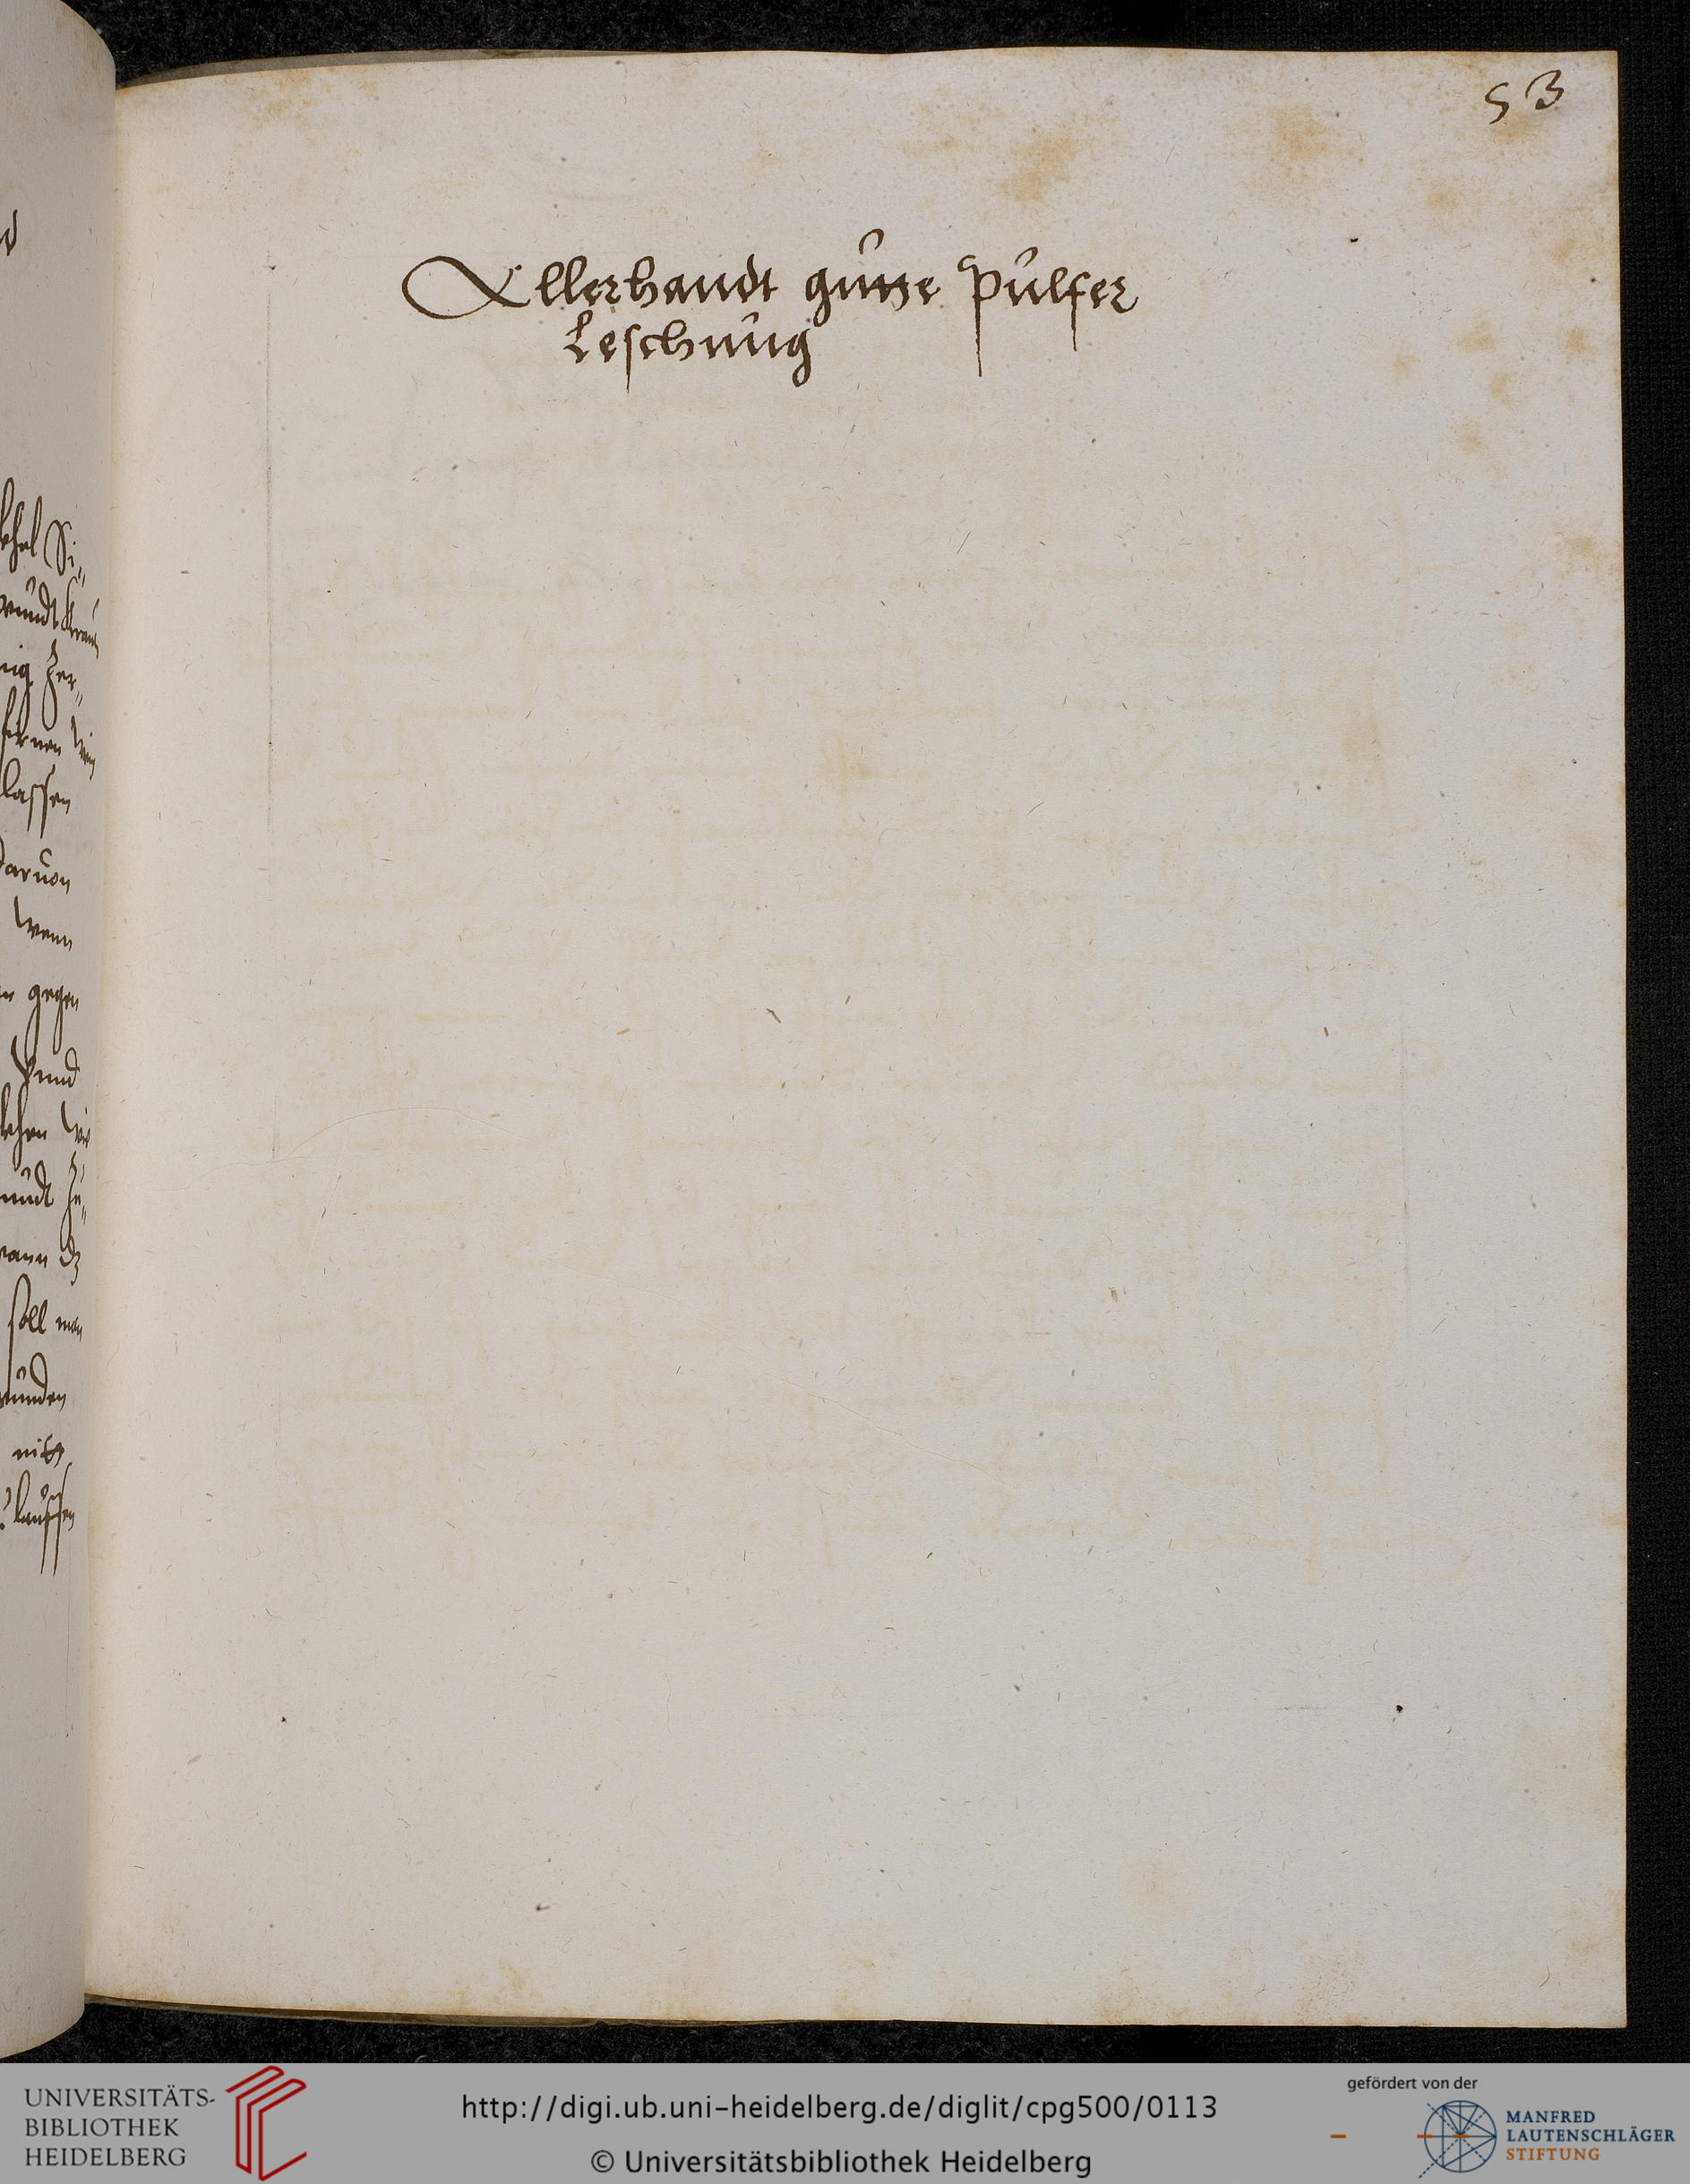 53
Allerhandt gutte Pulfer
Leschung
lassen
daruon
wenn
gegen
vnnd
soll man
lauffen
UNIVERSITÄTS-
BIBLIOTHEK
HEIDELBERG
http://digi.ub.uni-heidelberg.de/diglit/cpg500/0113
© Universitätsbibliothek Heidelberg
gefördert von der
MANFRED
LAUTENSCHLÄGER
STIFTUNG